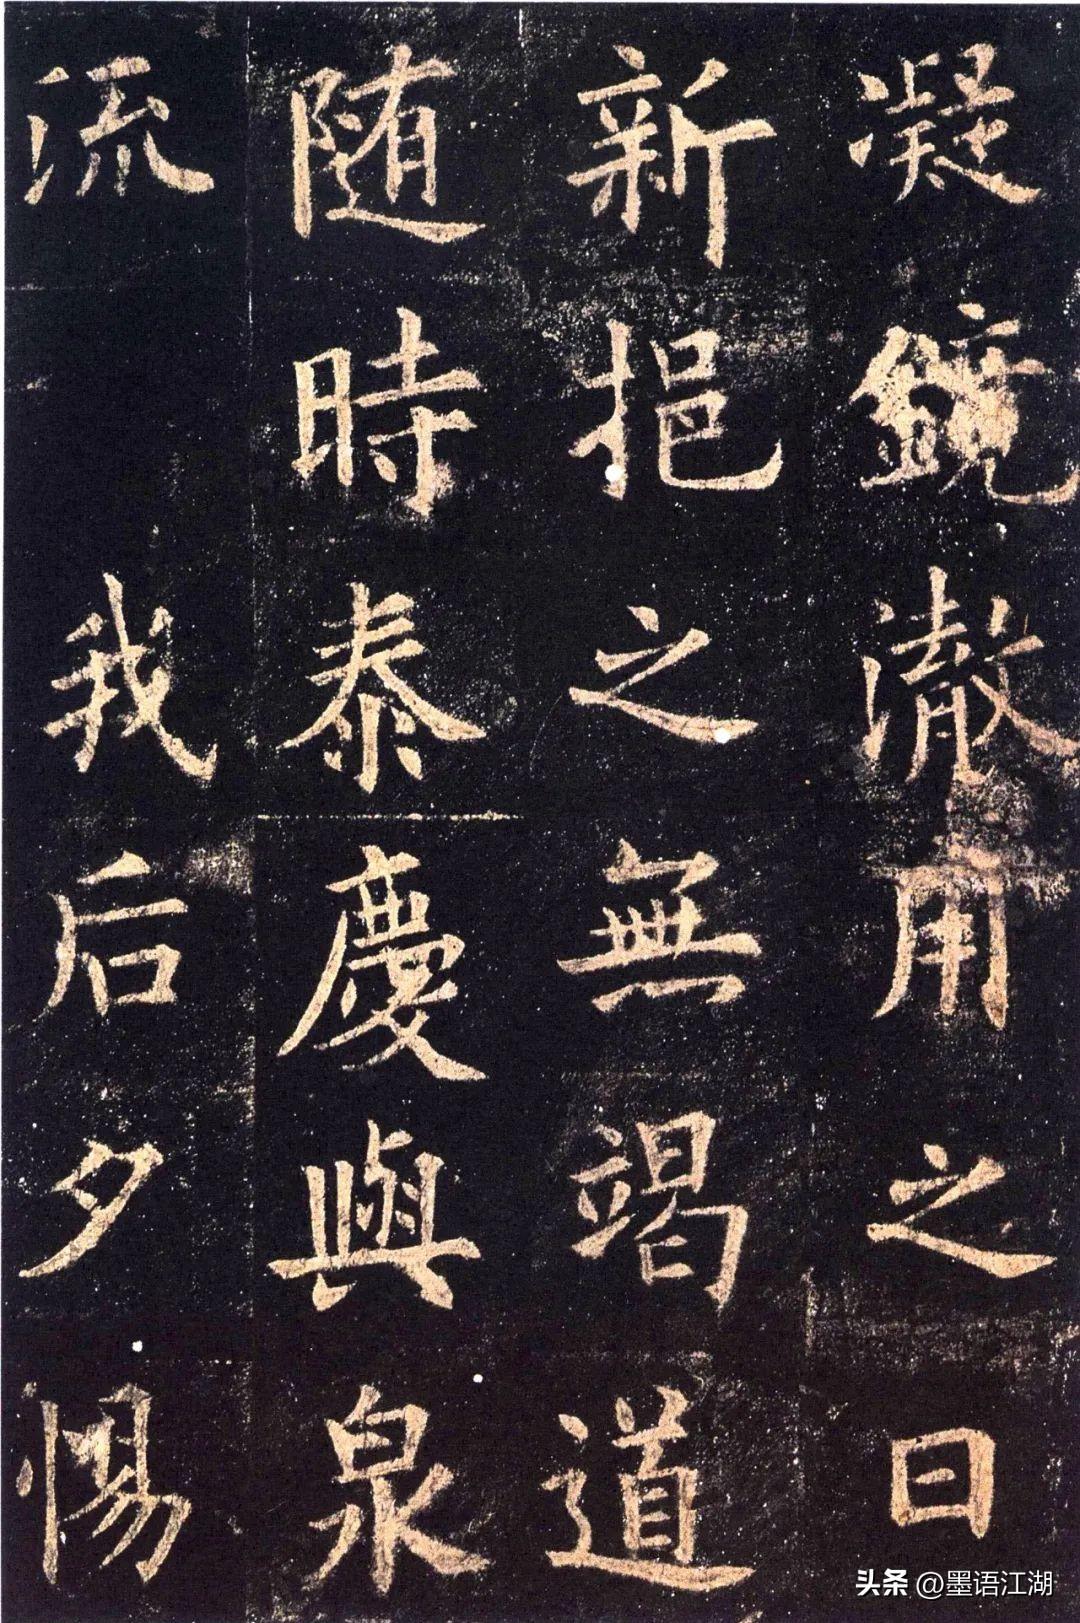 凝鏡澈用之日
新挹之無竭道
随時泰慶與泉
流 我后夕惕
头条 @墨语江湖